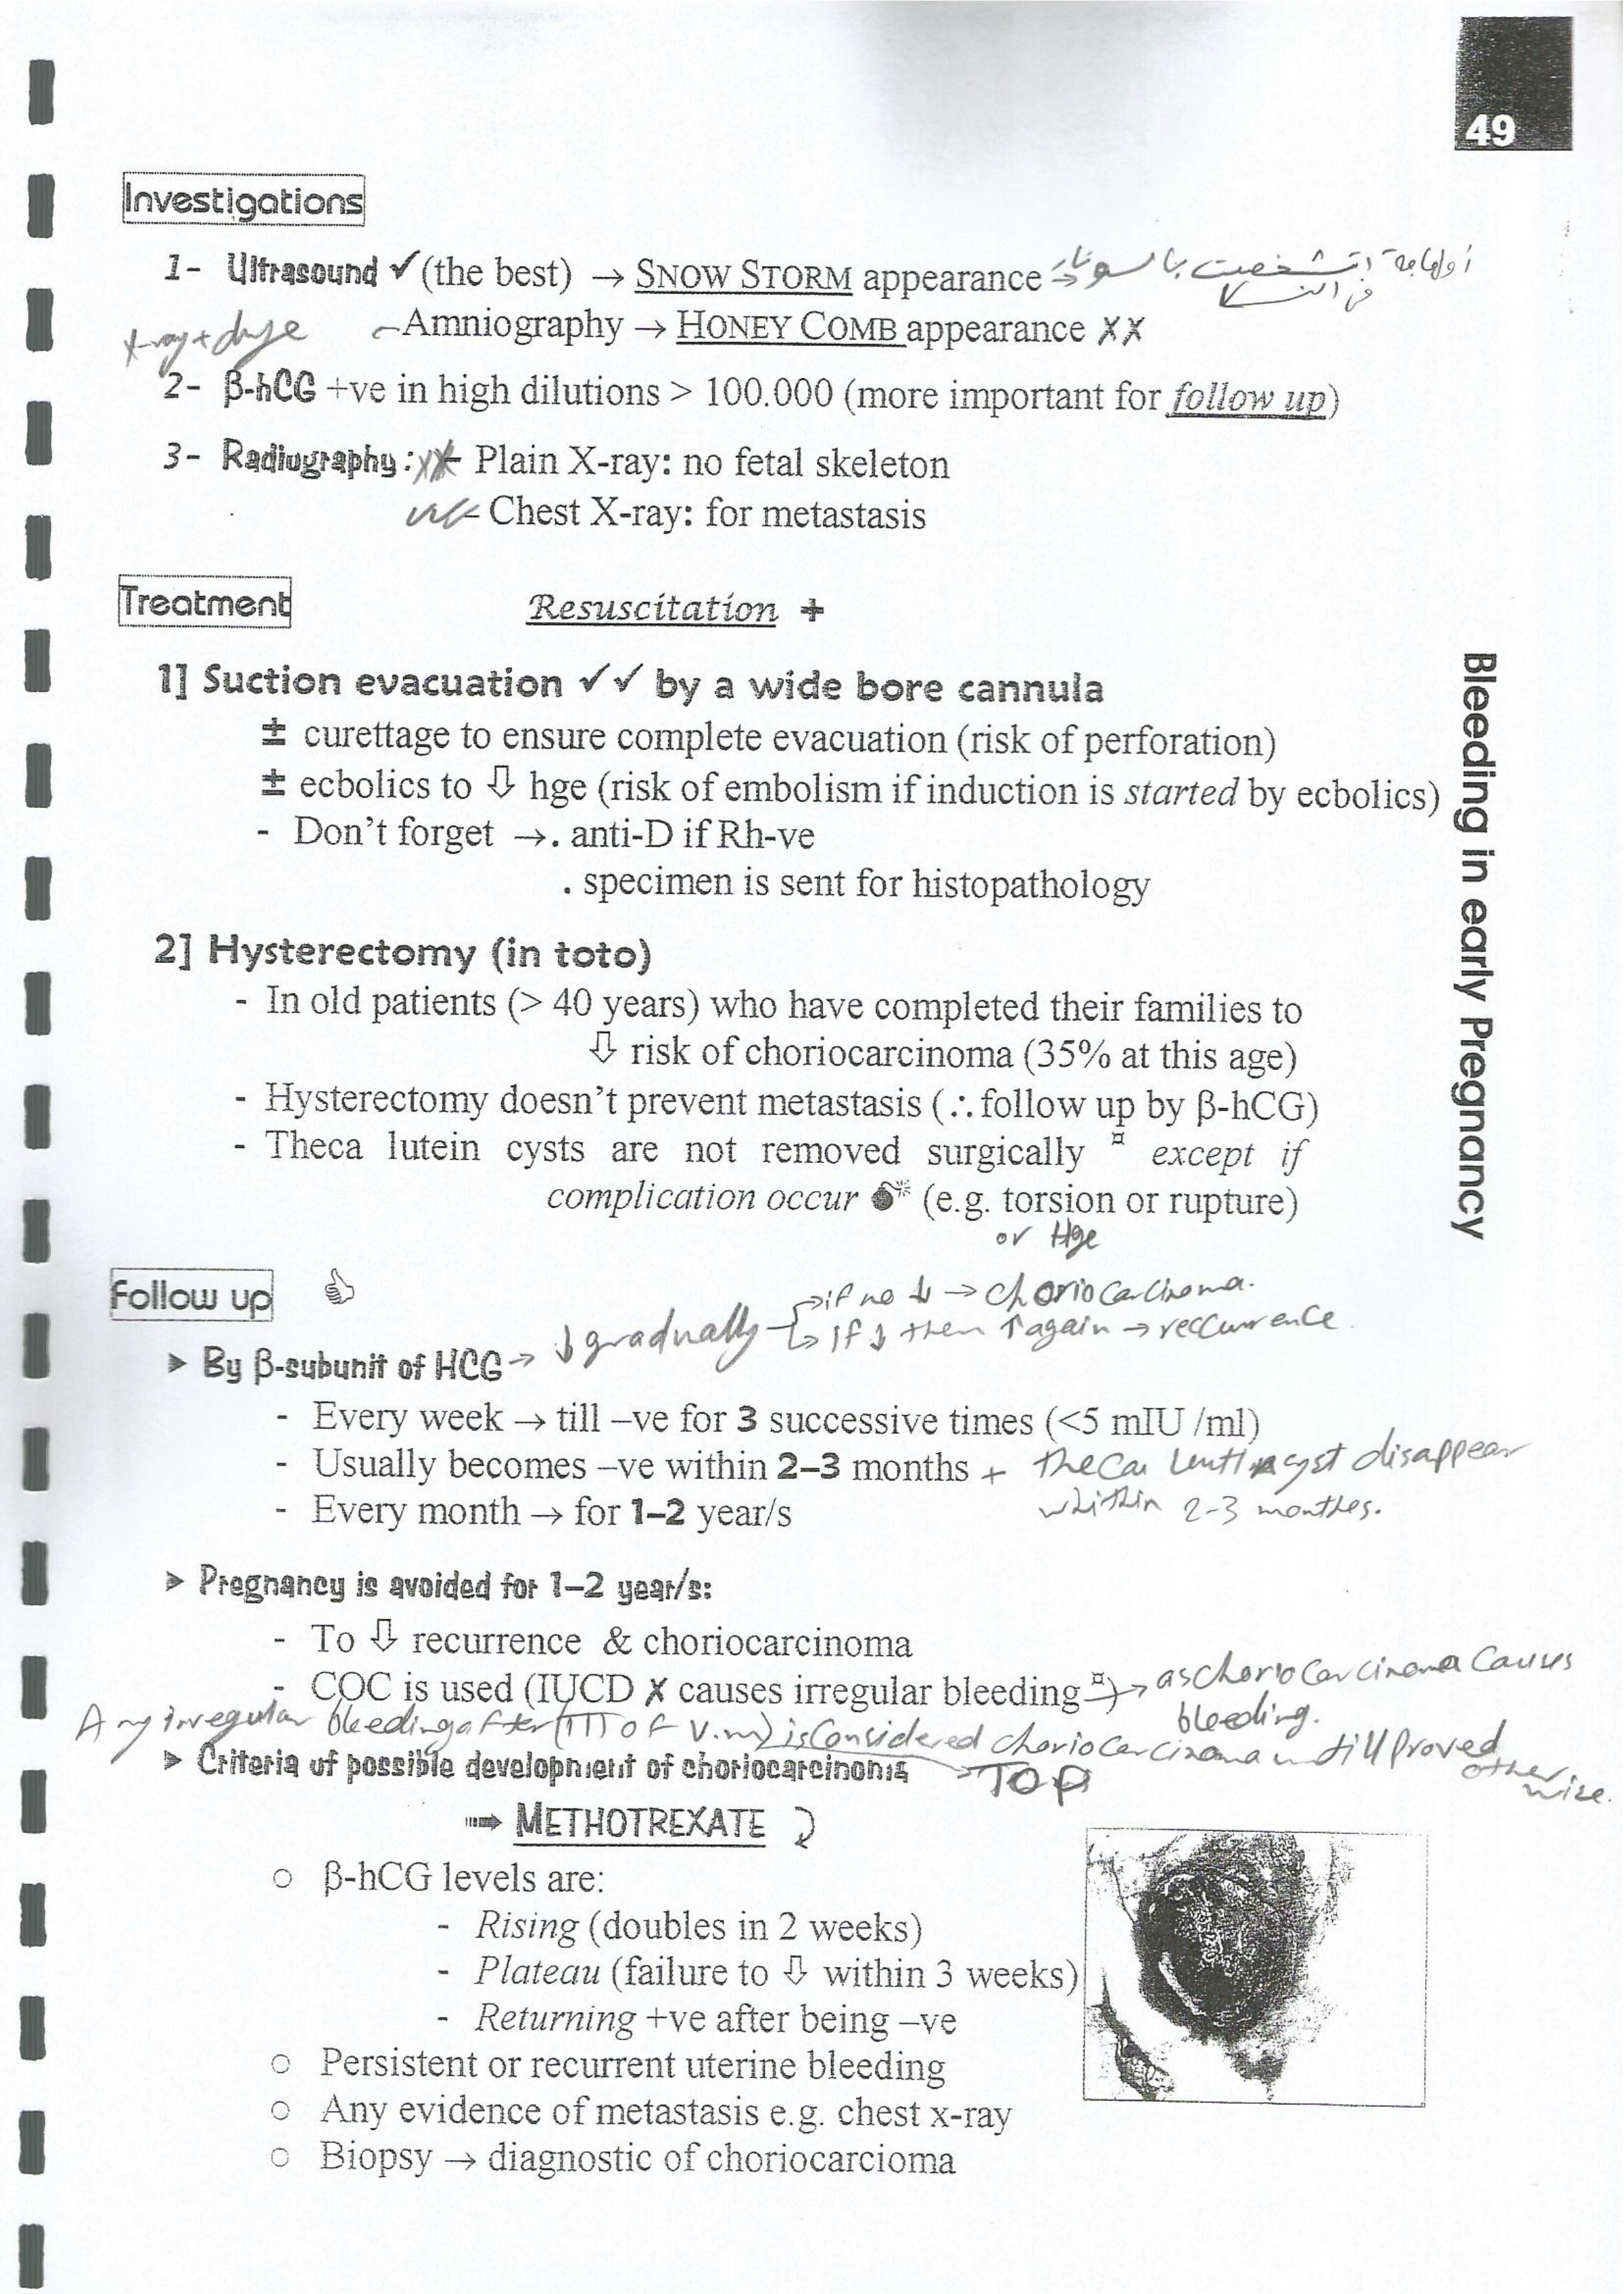 49
Investigations
1- Ultrasound ✓ (the best) → SNOW STORM appearance → أول حاجة اتشخصت بالسونار
في النسا
x-ray + dye
Amniography → HONEY COMB appearance XX
2- β-hCG +ve in high dilutions > 100.000 (more important for follow up)
3- Radiography: xx - Plain X-ray: no fetal skeleton
- Chest X-ray: for metastasis
Treatment
Resuscitation +
1] Suction evacuation ✓✓ by a wide bore cannula
± curettage to ensure complete evacuation (risk of perforation)
± ecbolics to ⇩ hge (risk of embolism if induction is started by ecbolics)
- Don't forget →. anti-D if Rh-ve
. specimen is sent for histopathology
2] Hysterectomy (in toto)
- In old patients (> 40 years) who have completed their families to
⇩ risk of choriocarcinoma (35% at this age)
- Hysterectomy doesn't prevent metastasis (∴ follow up by β-hCG)
- Theca lutein cysts are not removed surgically ¤ except if
complication occur 💣 (e.g. torsion or rupture)
or Hge
Follow up 👍
↓ gradually → if no ↓ → choriocarcinoma.
→ if ↓ then ↑ again → reccurrence.
➤ By β-subunit of HCG →
- Every week → till –ve for 3 successive times (<5 mIU /ml)
- Usually becomes –ve within 2–3 months + theca lentin cyst disappear
whithin 2-3 monthes.
- Every month → for 1–2 year/s
➤ Pregnancy is avoided for 1–2 year/s:
- To ⇩ recurrence & choriocarcinoma
- COC is used (IUCD ✗ causes irregular bleeding ¤) → as choriocarcinoma causes
bleeding.
Any irregular bleeding after (TTT of V.m) is considered choriocarcinoma untill proved
other wise.
➤ Criteria of possible development of choriocarcinoma → TOP
➠ METHOTREXATE
○ β-hCG levels are:
- Rising (doubles in 2 weeks)
- Plateau (failure to ⇩ within 3 weeks)
- Returning +ve after being –ve
○ Persistent or recurrent uterine bleeding
○ Any evidence of metastasis e.g. chest x-ray
○ Biopsy → diagnostic of choriocarcioma
Bleeding in early Pregnancy